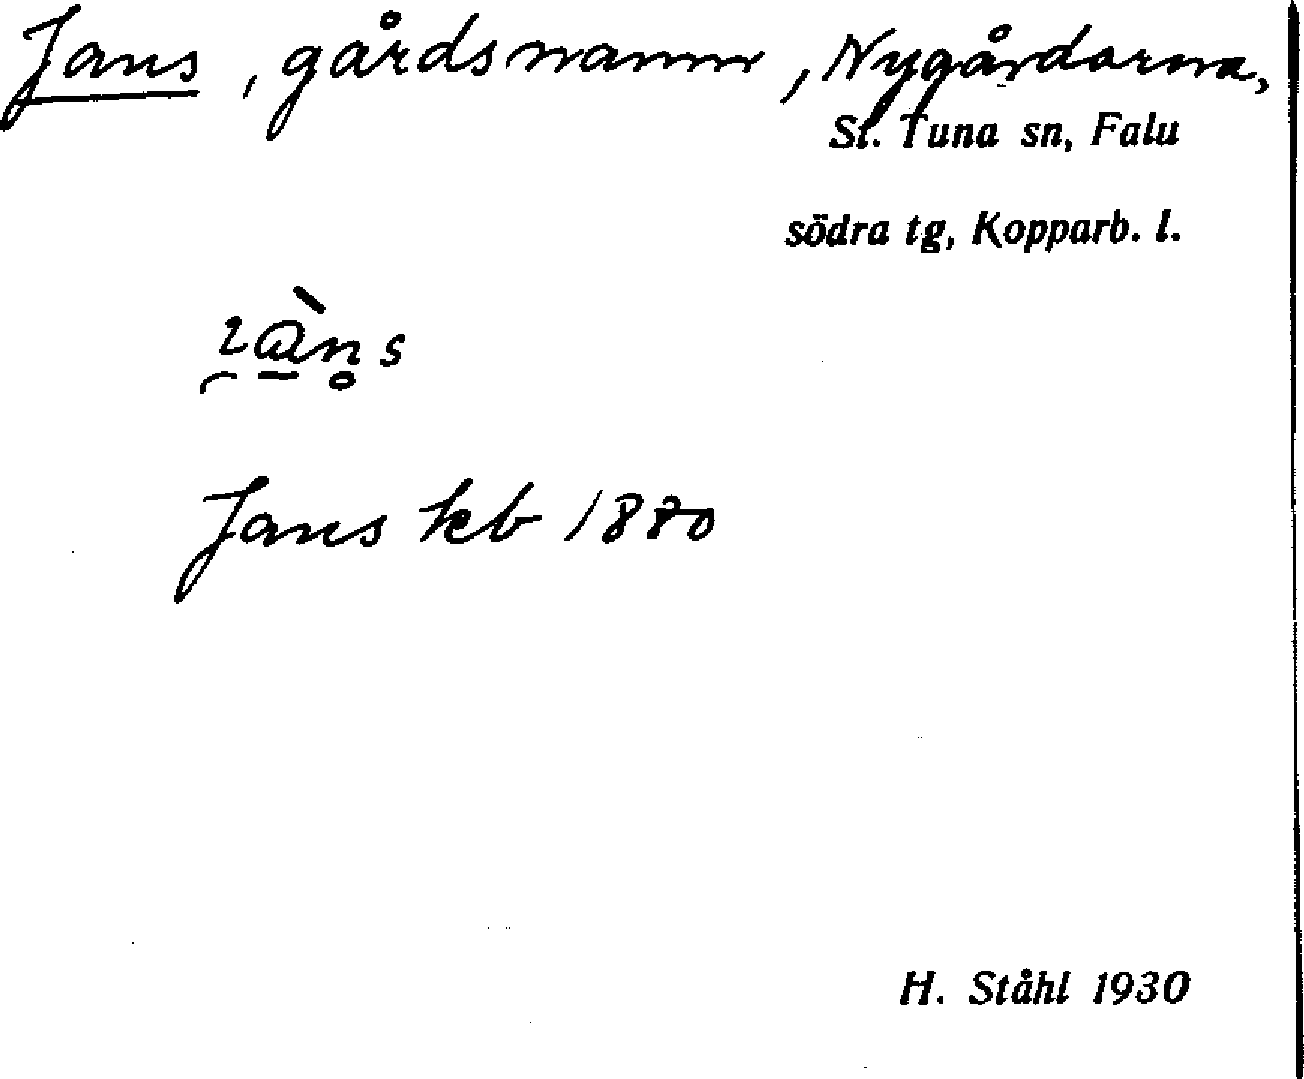 Jans, gårdsnamn, Nygårdarna,
St. Tuna sn, Falu
södra tg, Kopparb. l.
Jans kb 1880
H. Ståhl 1930